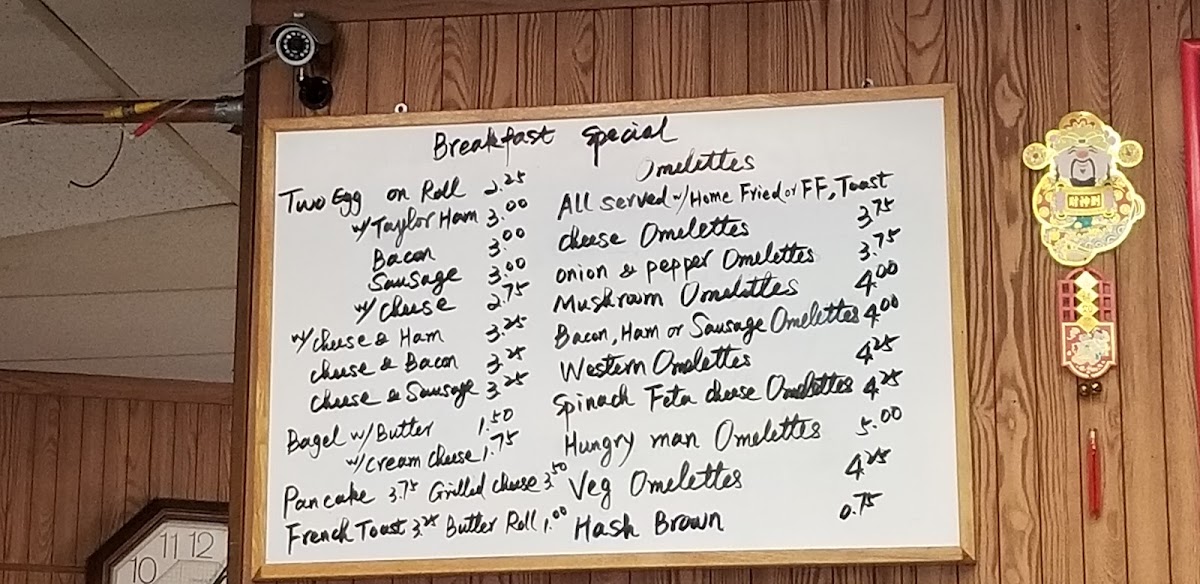 Breakfast Special
Two Egg on Roll 2.25
w/Taylor Ham 3.00
Bacon 3.00
Sausage 3.00
w/cheese 2.75
w/cheese & Ham 3.25
cheese & Bacon 3.25
cheese & Sausage 3.25
Bagel w/Butter 1.50
w/cream cheese 1.75
Pancake 3.75 Grilled cheese 3.50
French Toast 3.25 Butter Roll 1.00
Omelettes
All served w/Home Fried or FF, Toast
cheese Omelettes 3.75
onion & pepper Omelettes 3.75
Mushroom Omelettes 4.00
Bacon, Ham or Sausage Omelettes 4.00
Western Omelettes 4.25
Spinach Feta cheese Omelettes 4.25
Hungry man Omelettes 5.00
Veg Omelettes 4.25
Hash Brown 0.75
10 11 12